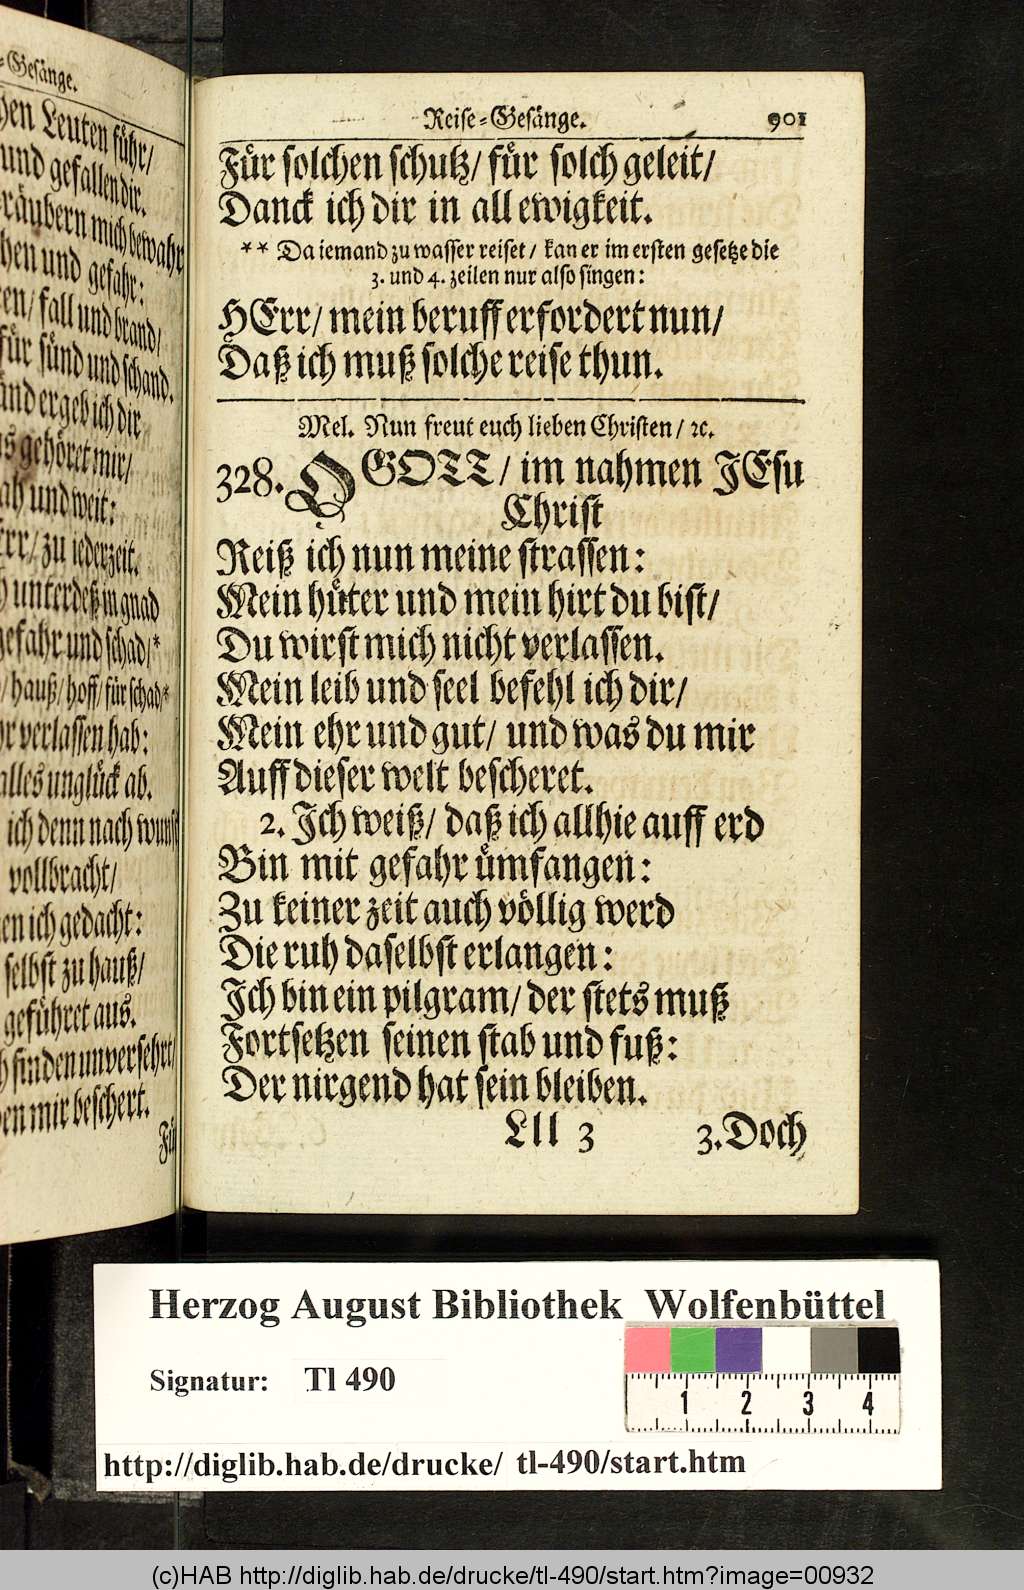 =Gesänge.
hen Leuten führ/
und gefallen dir.
räubern mich bewahr
hen und gefahr:
en/ fall und brand/
für sünd und schand.
änd ergeb ich dir
gehöret mir/
ab und weit:
Err/ zu iederzeit.
unterdeß in gnad
gefahr und schad/*
/ hauß/ hoff/ für schad/*
r verlassen hab:
alles unglück ab.
ich denn nach wunsch
vollbracht/
en ich gedacht:
selbst zu hauß/
geführet aus.
h finden unversehrt/
en mir beschert.
Für
Reise=Gesänge. 901
Für solchen schutz/ für solch geleit/
Danck ich dir in all ewigkeit.
** Da iemand zu wasser reiset/ kan er im ersten gesetze die
3. und 4. zeilen nur also singen:
HErr/ mein beruff erfordert nun/
Daß ich muß solche reise thun.
Mel. Nun freut euch lieben Christen/ ꝛc.
328. O GOTT/ im nahmen JEsu
Christ
Reiß ich nun meine strassen:
Mein hüter und mein hirt du bist/
Du wirst mich nicht verlassen.
Mein leib und seel befehl ich dir/
Mein ehr und gut/ und was du mir
Auff dieser welt bescheret.
2. Ich weiß/ daß ich allhie auff erd
Bin mit gefahr ümfangen:
Zu keiner zeit auch völlig werd
Die ruh daselbst erlangen:
Ich bin ein pilgram/ der stets muß
Fortsetzen seinen stab und fuß:
Der nirgend hat sein bleiben.
Lll 3 3. Doch
Herzog August Bibliothek Wolfenbüttel
Signatur: Tl 490
1 2 3 4
http://diglib.hab.de/drucke/ tl-490/start.htm
(c)HAB http://diglib.hab.de/drucke/tl-490/start.htm?image=00932